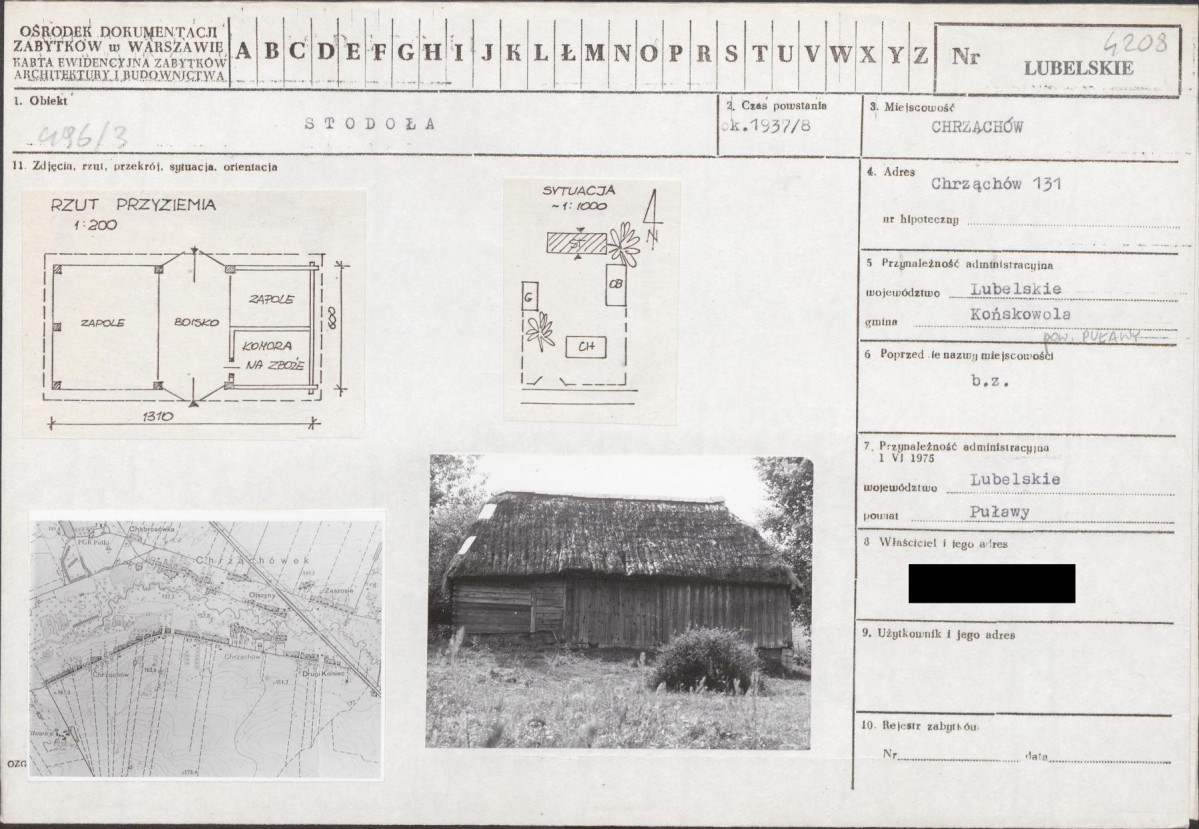 OŚRODEK DOKUMENTACJI
ZABYTKÓW w WARSZAWIE
KARTA EWIDENCYJNA ZABYTKÓW
ARCHITEKTURY I BUDOWNICTWA
A B C D E F G H I J K L Ł M N O P R S T U V W X Y Z
Nr
4208
LUBELSKIE
1. Obiekt
496/3
STODOŁA
2. Czas powstania
ok.1937/8
3. Miejscowość
CHRZĄCHÓW
11. Zdjęcia, rzut, przekrój, sytuacja, orientacja
4. Adres
Chrząchów 131
nr hipoteczny
RZUT PRZYZIEMIA
1:200
ZAPOLE
BOISKO
ZAPOLE
KOMORA
NA ZBOŻE
600
1310
SYTUACJA
~1:1000
N
ST
G
OB
CH
5 Przynależność administracyjna
województwo Lubelskie
gmina Końskowola
pow. PUŁAWY
6 Poprzed ie nazwy miejscowości
b.z.
7. Przynależność administracyjna
1 VI 1975
województwo Lubelskie
powiat Puławy
8 Właściciel i jego adres
9. Użytkownik i jego adres
10. Rejestr zabytków
Nr
data
Chabrosówka
PGR Pulki
Chrząchówek
Olszyny
Zaszosie
Chrząchów
Chrząchów
Drugi Koniec
OZG